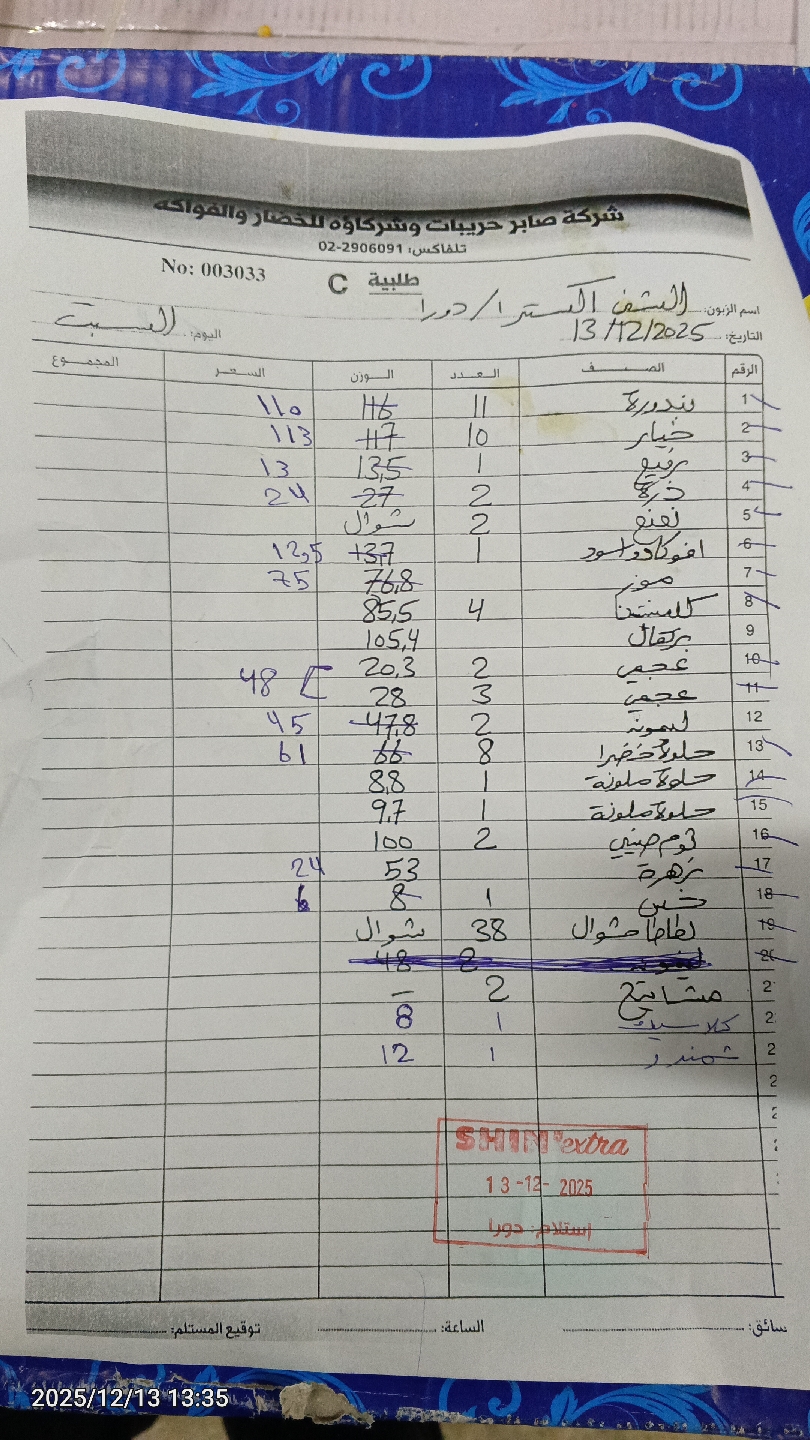 شركة صابر حريبات وشركاؤه للخضار والفواكه
تلفاكس: 02-2906091
No: 003033 طلبية C
اسم الزبون: الشف اكسترا/دورا
التاريخ: 13/12/2025 اليوم: السبت
الرقم الصنف العدد الوزن السعر المجموع
1 بندورة 11 116 110
2 خيار 10 117 113
3 رفيع 1 13,5 13
4 ذرة 2 27 24
5 نعنع 2 شوال
6 افوكادو اسود 1 13,7 12,5
7 موز 76,8 75
8 كلمنتينا 4 85,5
9 برتقال 105,4
10 عجمي 2 20,3 48
11 عجمي 3 28
12 ليمونة 2 47,8 45
13 حلوة خضرا 8 66 61
14 حلوة ملونة 1 8,8
15 حلوة ملونة 1 9,7
16 ثوم صيني 2 100
17 زهرة 53 24
18 خس 1 8 6
19 بطاطا شوال 38 شوال
20 2 48
2 مشاتيح 2 -
2 كلاسيك 1 8
2 شمندر 1 12
2
2
SHINI extra
13-12-2025
استلام: دورا
سائق: الساعة: توقيع المستلم:
2025/12/13 13:35